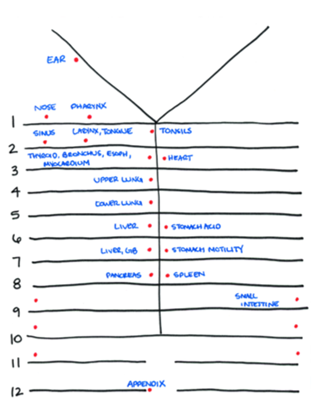 EAR
NOSE PHARYNX
1
SINUS LARYNX, TONGUE TONSILS
2
THYROID, BRONCHUS, ESOPH, HEART
MYOCARDIUM
3
UPPER LUNG
4
LOWER LUNG
5
LIVER STOMACH ACID
6
LIVER, GB STOMACH MOTILITY
7
PANCREAS SPLEEN
8
SMALL
INTESTINE
9
10
11
APPENDIX
12